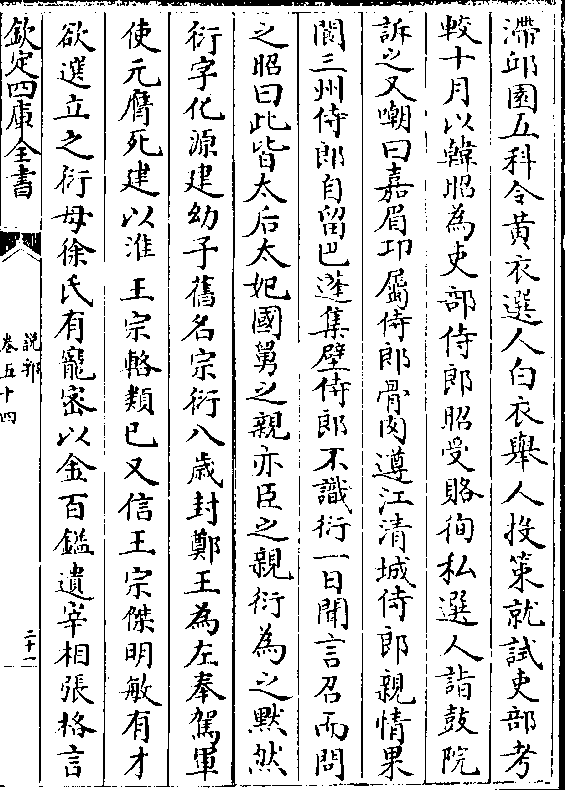 滯邱園五科令黄衣選人白衣舉人投策就試吏部考
較十月以韓昭為吏部侍郎昭受賂徇私選人詣鼓院
訴之又嘲曰嘉眉卭屬侍郎骨肉遵江清城侍郎親情果
閬三州侍郎自留巴蓬集壁侍郎不識衍一日聞言召而問
之昭曰此皆太后太妃國舅之親亦臣之親衍為之黙然
衍字化源建幼子舊名宗衍八歲封鄭王為左奉駕軍
使元膺死建以淮王宗輅類已又信王宗傑明敏有才
欲選立之衍母徐氏有寵密以金百鎰遺宰相張格言
欽定四庫全書
說郛
卷五十四
二十一